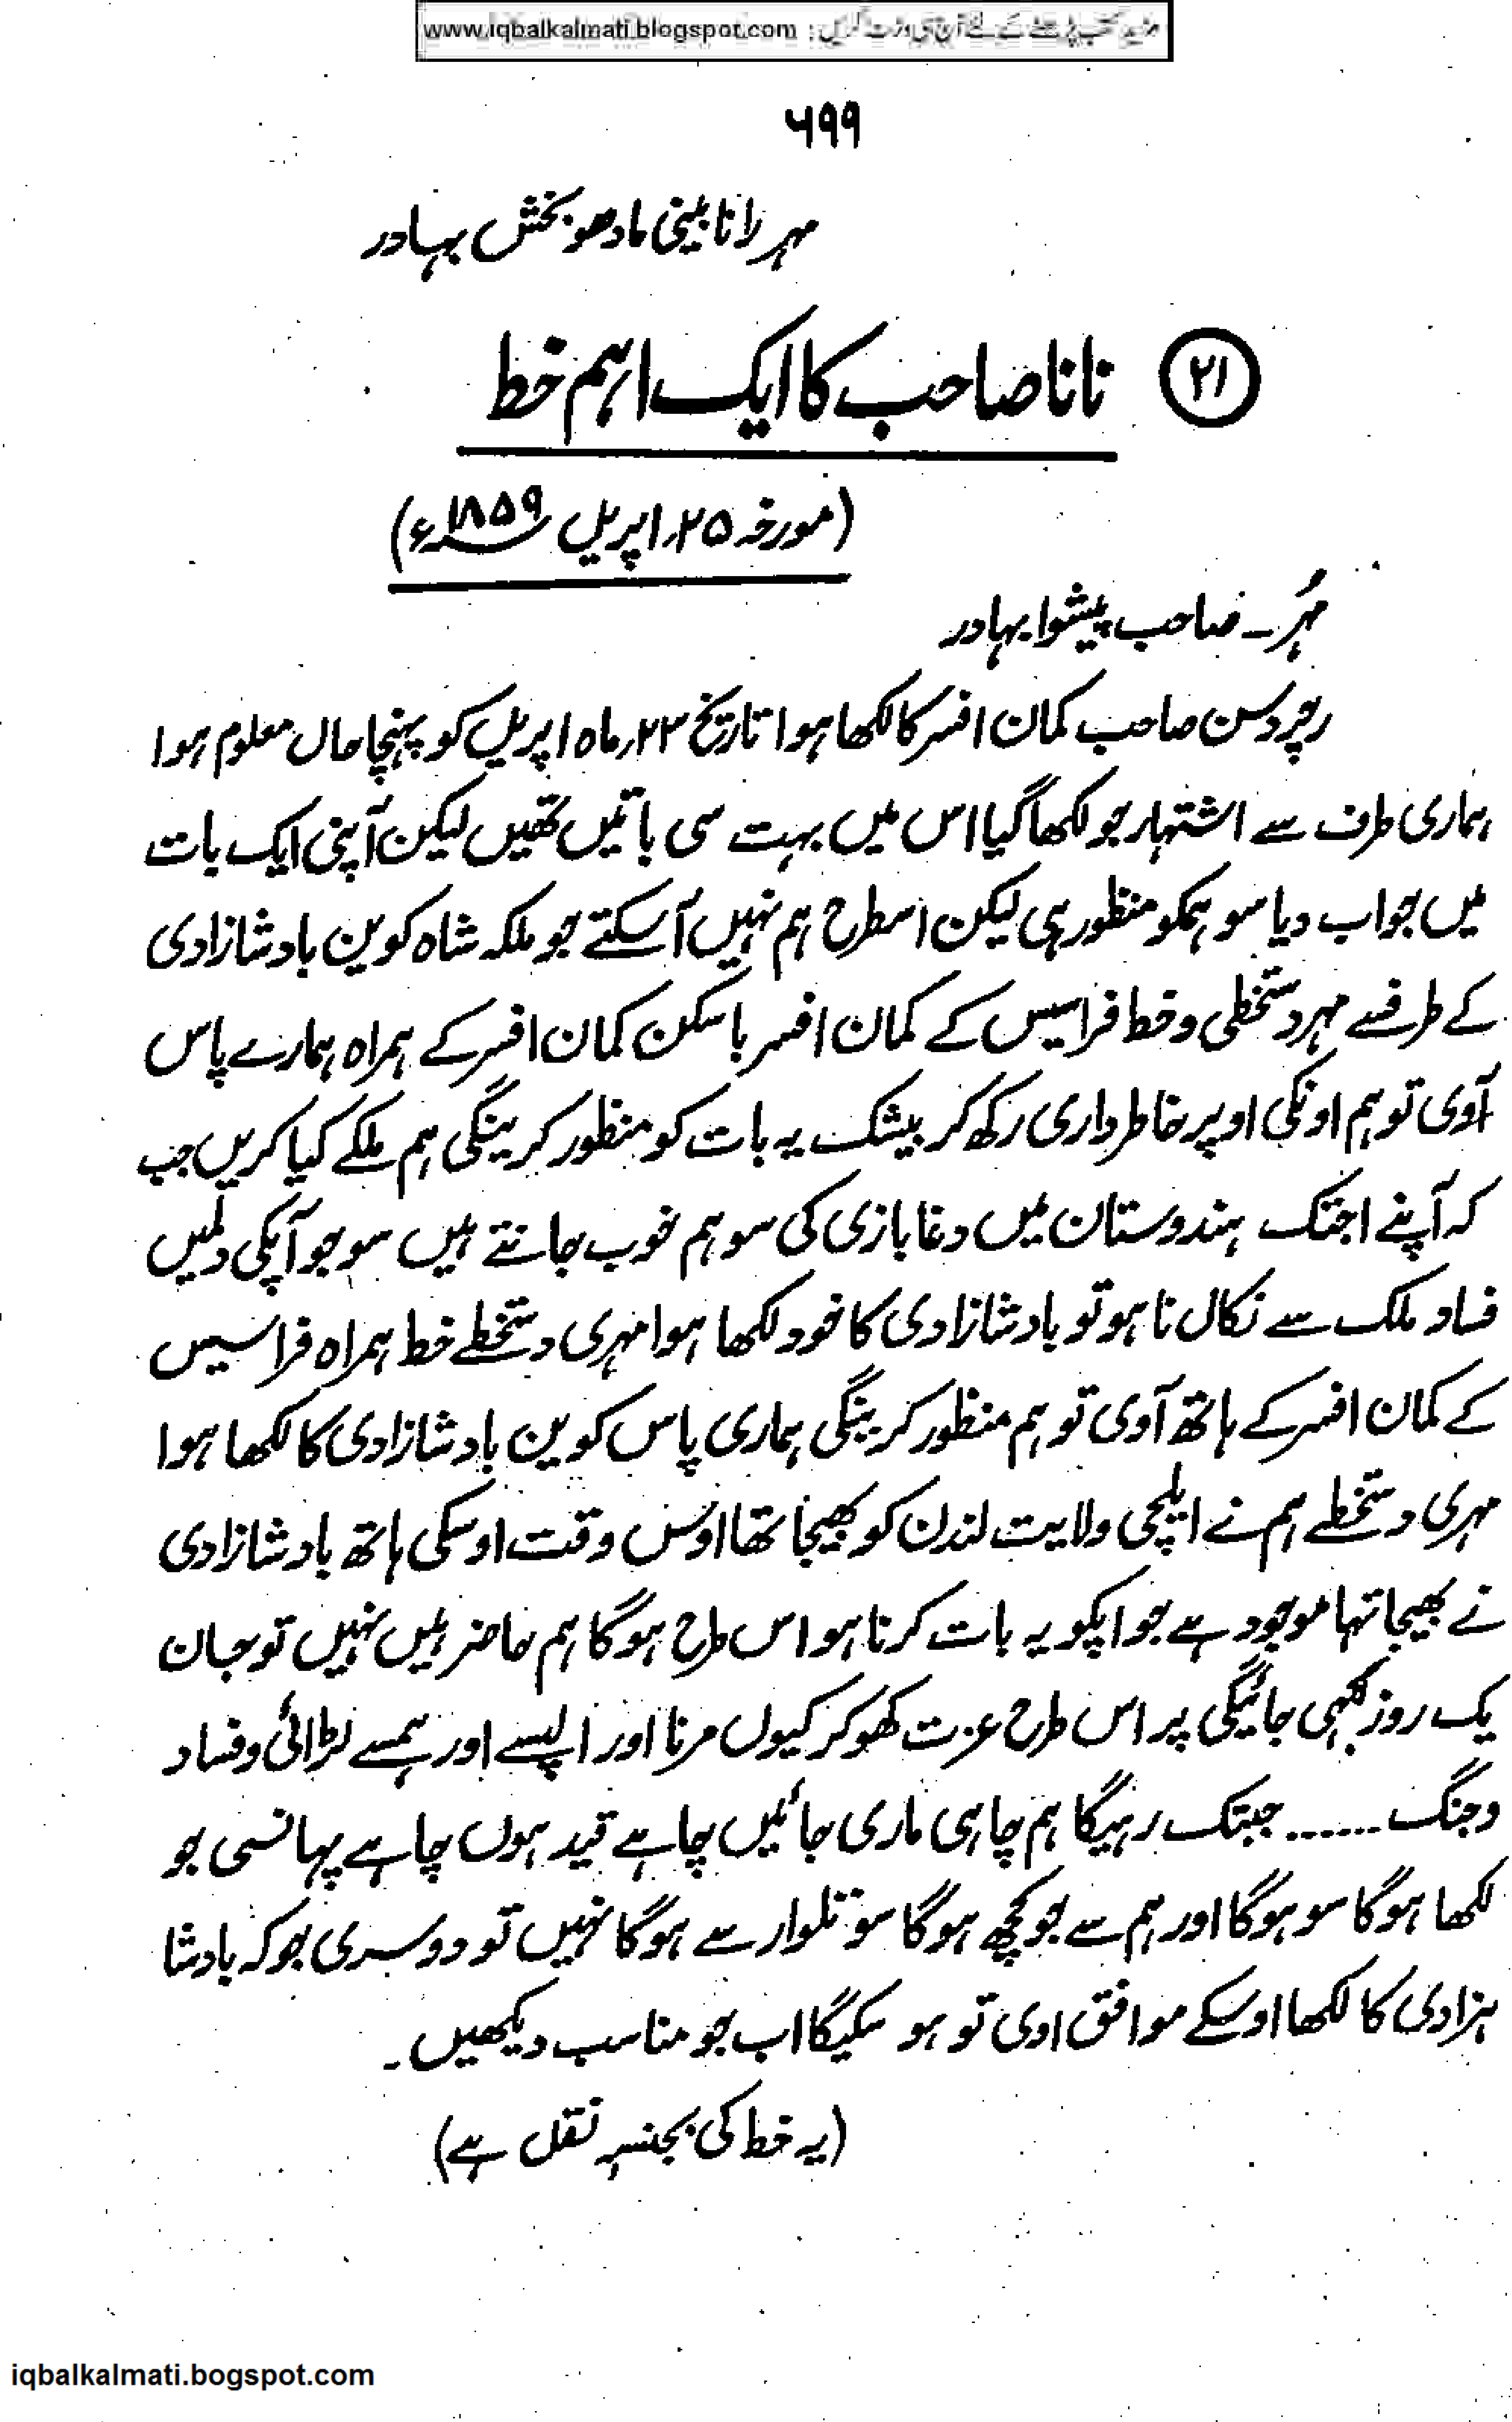 www.iqbalkalmati.blogspot.com : مزید کتب پڑھنے کے لئے آج ہی وزٹ کریں
۵۹۹
مہر رانا بینی مادھو بخش بہادر
۲۱ نانا صاحب کا ایک اہم خط
(مورخہ ۲۵؍ اپریل ۱۸۵۹ء)
مُہر ۔ صاحب پیشوا بہادر
رچردسن صاحب کمان افسر کا لکھا ہوا تاریخ ۲۳؍ ماہ اپریل کو پہنچا حال معلوم ہوا
ہماری طرف سے اشتہار جو لکھا گیا اس میں بہت سی باتیں تھیں لیکن آپنی ایک بات
میں جواب دیا سو ہمکو منظور ہی لیکن اسطرح ہم نہیں آسکتے جو ملکہ شاہ کوین بادشازادی
کے طرفسے مہر دستخطی و خط فراسیس کے کمان افسر با سکن کمان افسر کے ہمراہ ہمارے پاس
آوی تو ہم اونکی اوپر خاطرداری رکھ کر بیشک یہ بات کو منظور کرینگی ہم ملکے کیا کریں جب
کہ آپنے اجتک ہندوستان میں دغا بازی کی سو ہم خوب جانتے ہیں سو جو آپکی دلمیں
فساد ملک سے نکال نا ہو تو بادشازادی کا خود لکھا ہوا مہری دستخطے خط ہمراہ فراسیس
کے کمان افسر کے ہاتھ آوی تو ہم منظور کرینگی ہماری پاس کوین بادشازادی کا لکھا ہوا
مہری دستخطے ہم نے ایلچی ولایت لندن کو بھیجا تھا اوس وقت اوسکی ہاتھ بادشازادی
نے بھیجا تہا موجود ہے جو اپکو یہ بات کرنا ہو اس طرح ہوگا ہم حاضر ہیں نہیں تو جان
یک روز بھی جائیگی پر اس طرح عزت کھو کر کیوں مرنا اور اپسے اور ہمسے لڑائی و فساد
و جنگ ...... جبتک رہیگا ہم چاہی ماری جائیں چاہے قید ہوں چاہے پہانسی جو
لکھا ہوگا سو ہوگا اور ہم سے جو کچھ ہوگا سو تلوار سے ہوگا نہیں تو دوسری جو کہ بادشا
ہزادی کا لکھا اوسکے موافق اوی تو ہو سکیگا اب جو مناسب دیکھیں ۔
(یہ خط کی بجنسہٖ نقل ہے)
iqbalkalmati.bogspot.com